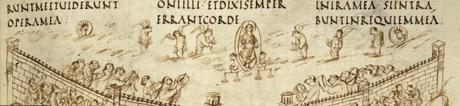 RUNTMEETUIDERUNT
OPERAMEA·
ONIILLI· ETDIXISEMPER
ERRANTCORDE
INIRAMEA SIINTRA
BUNTINREQUIEMMEA·